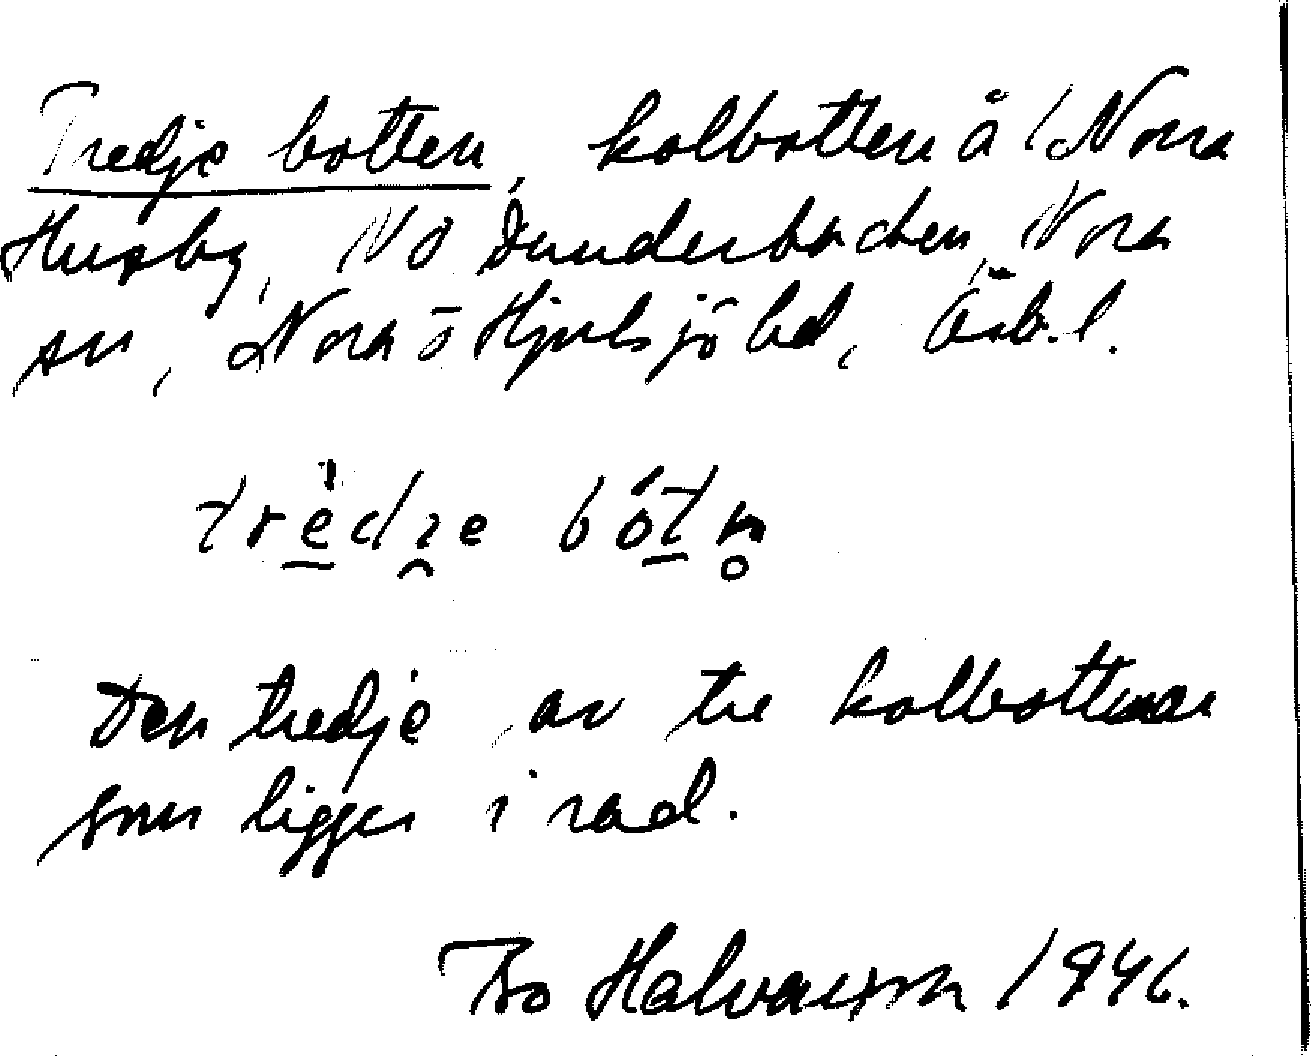 Tredje botten, kolbotten å 1 Norra
Husby, NO Dunderbacken, Nora
sn, Nora o Hjulsjö bd, Örb.l.
trèdɿe bót̲n̥
Den tredje av tre kolbottnar
som ligger i rad.
Bo Halvarson 1946.